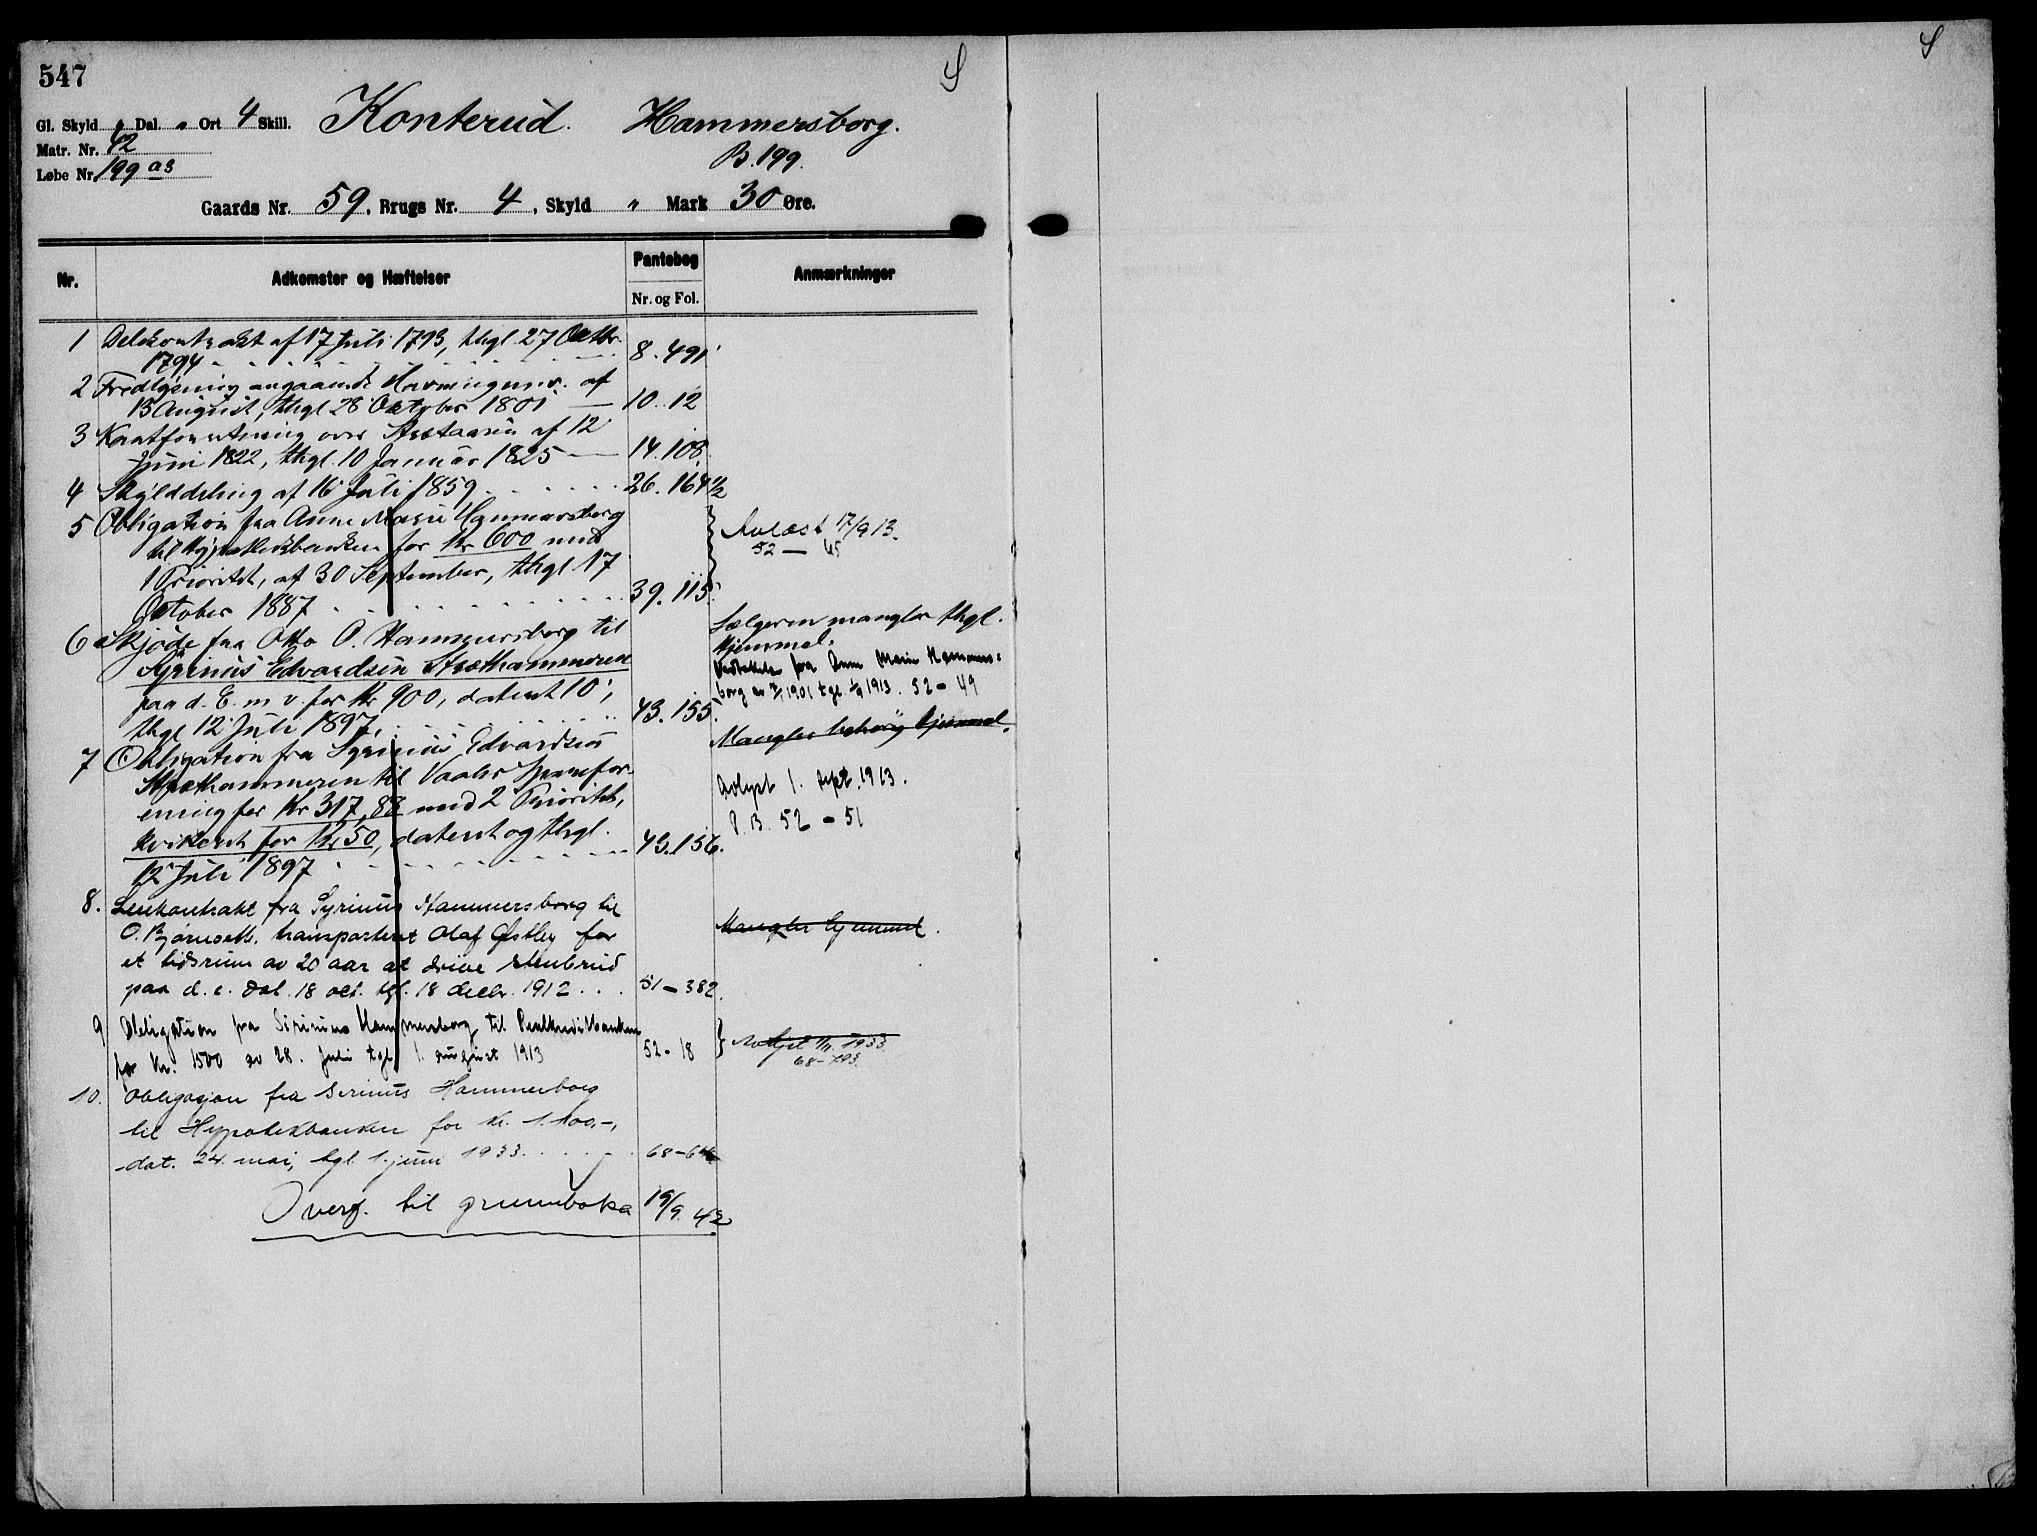 547
Gl. Skyld " Dal. " Ort 4 Skill. Konterud. Hammersborg.
Matr. Nr. 42
B. 199.
Løbe Nr. 199 a3
Gaards Nr. 59, Brugs Nr. 4, Skyld " Mark 30 Øre.
Nr. Adkomster og Hæftelser Pantebog Nr. og Fol. Anmærkninger
1 Delekontrakt af 17 Juli 1793, thgl 27 Octbr.
1794 8. 491
2 Fredlysning angaaende Havningen m. v. af
13 August, thgl 28 October 1801 10. 12
3 over af 12
Juni 1822, thgl. 10 Januar 1825 14. 108
4 Skylddeling af 16 Juli 1859 26. 164 1/2
5 Obligation fra Anne Marie Hammersborg
til Hypothekbanken for Kr 600 med
1 Prioritet, af 30 September, thgl 17
October 1887 39. 115.
Avlæst 17/9 13.
52 — 45
6 Skjøde fra Otto O. Hammersborg til
Syrinus Edvardsen Stræthammeren
paa d. E. m v. for Kr 900, dateret 10,
thgl 12 Juli 1897, 43. 155.
Sælgeren mangler thgl.
Hjemmel.
fra Anne Marie Hammers-
borg av 1901 tgl 1/9 1913. 52 - 49
Mangler behørig hjemmel.
7 Obligation fra Syrinus Edvardsen
Stræthammeren til Vaaler Sparefor-
ening for Kr 317,88 med 2 Prioritet,
kvitteret for Kr 50, dateret og thgl.
12 Juli 1897 43. 156.
Avlyst 1. sept. 1913.
P. B. 52 - 51
8. Leiekontrakt fra Syrinus Hammersborg til
O. Bjørneseth, transporteret Olaf Østby for
et tidsrum av 20 aar at drive stenbrud
paa d. e. dat. 18 oct. tgl. 18 decbr. 1912 . . . 51 - 382.
Mangler hjemmel.
9 Obligation fra Sirinus Hammersborg til Realkreditbanken
for Kr. 1500 av 28. juli tgl 1. august 1913 52 - 18
Avlyst 1933
68-793.
10. Obligasjon fra Sirinus Hammerborg
til Hypotekbanken for kr. 1.100.-,
dat. 24. mai, tgl. 1. juni 1933. 68-646
Overf. til grunnboka 19/9. 42